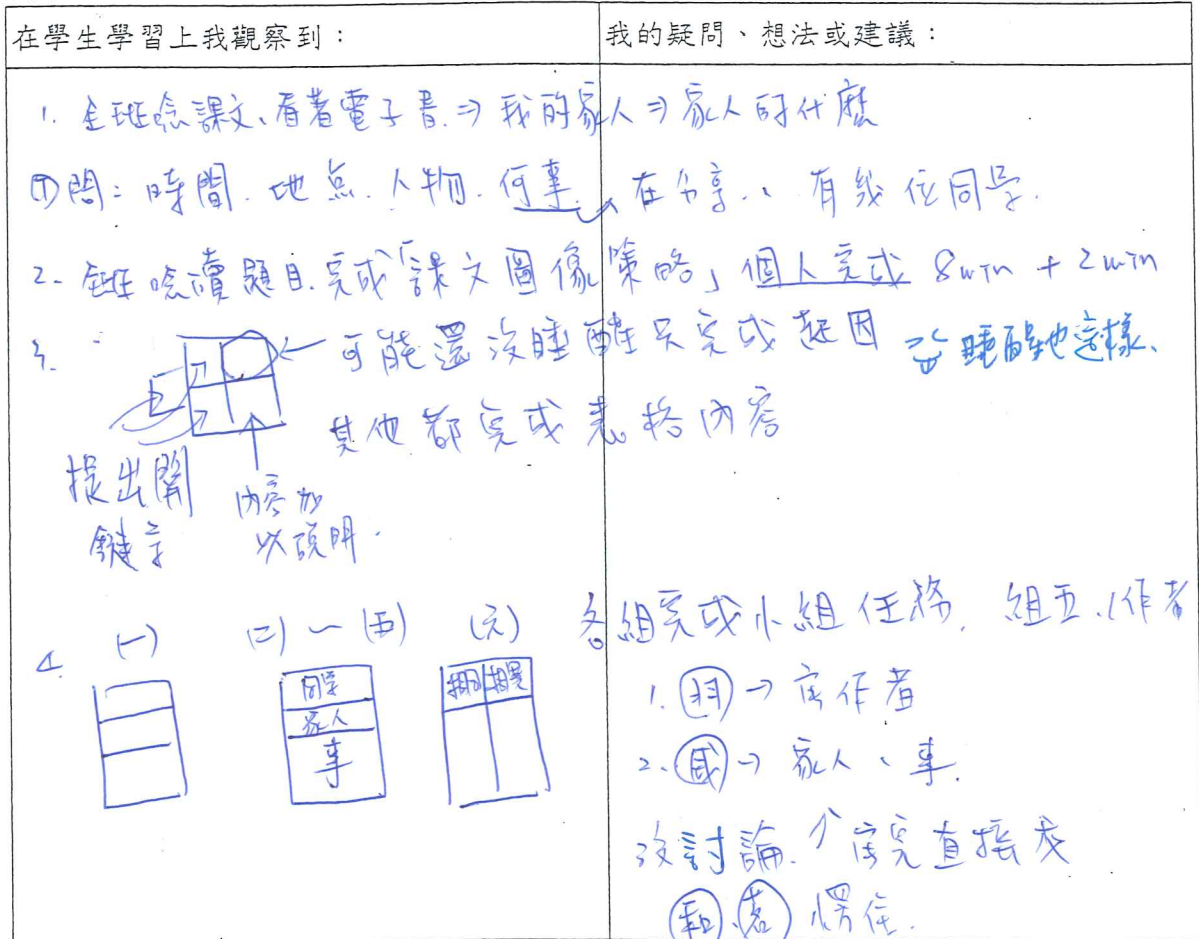 在學生學習上我觀察到：
我的疑問、想法或建議：
1. 全班念課文、看著電子書 ⇒ 我的家人 ⇒ 家人的什麼
問：時間、地点、人物、何事 在分享、有幾位同学.
2. 全班唸讀題目.完成「課文圖像策略」個人完成 8min + 2min
3.
可能還沒睡醒只完成起因
睡醒也這樣、
其他都完成表格內容
提出關
鍵字
內容加
以說明.
4. (一) (二)～(五) (六)
同学
家人
事
各組完成小組任務. 組五、作者
1. 羽 → 寫作者
2. → 家人、事.
沒討論. 寫完直接
和 愣住.